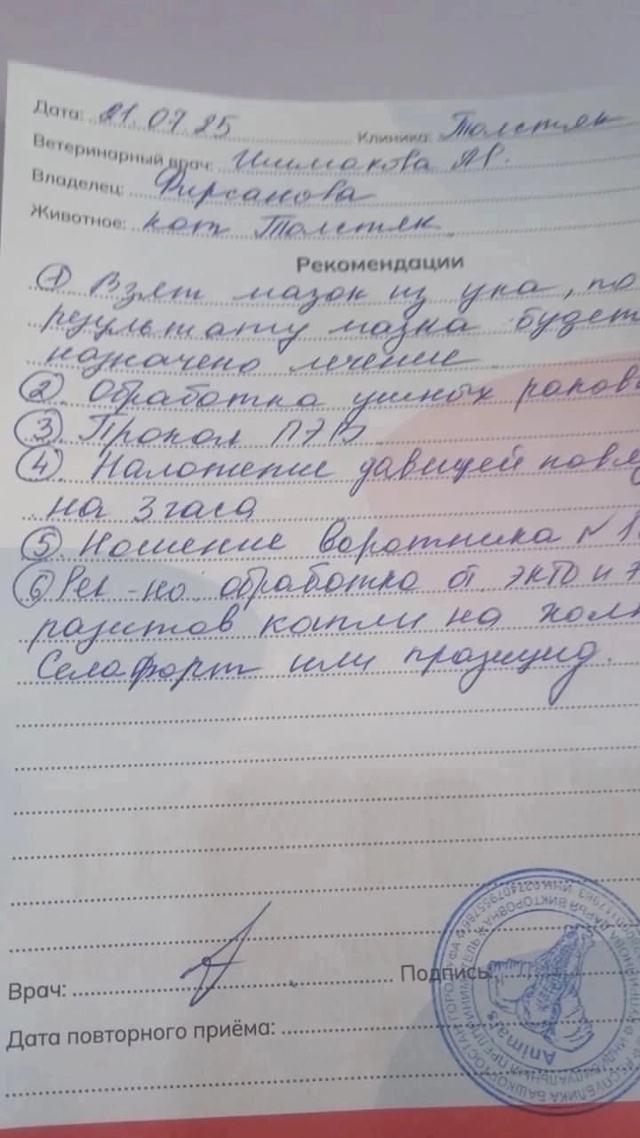 Дата: 21.07.25 Клиника: Толстяк
Ветеринарный врач: Ишмакова
Владелец: Фирсанова
Животное: кот Толстяк
Рекомендации
① Взят мазок из уха, по
результату мазка будет
назначено лечение
② Обработка ушных ракови
③ Прокол
④ Наложение давящей повя
на 3 часа
⑤ Ношение воротника N
⑥ Рег-но обработка от экто и э
разитов капли на холк
Селафорт или празицид.
Врач: Подпись:
Дата повторного приёма:
Animals